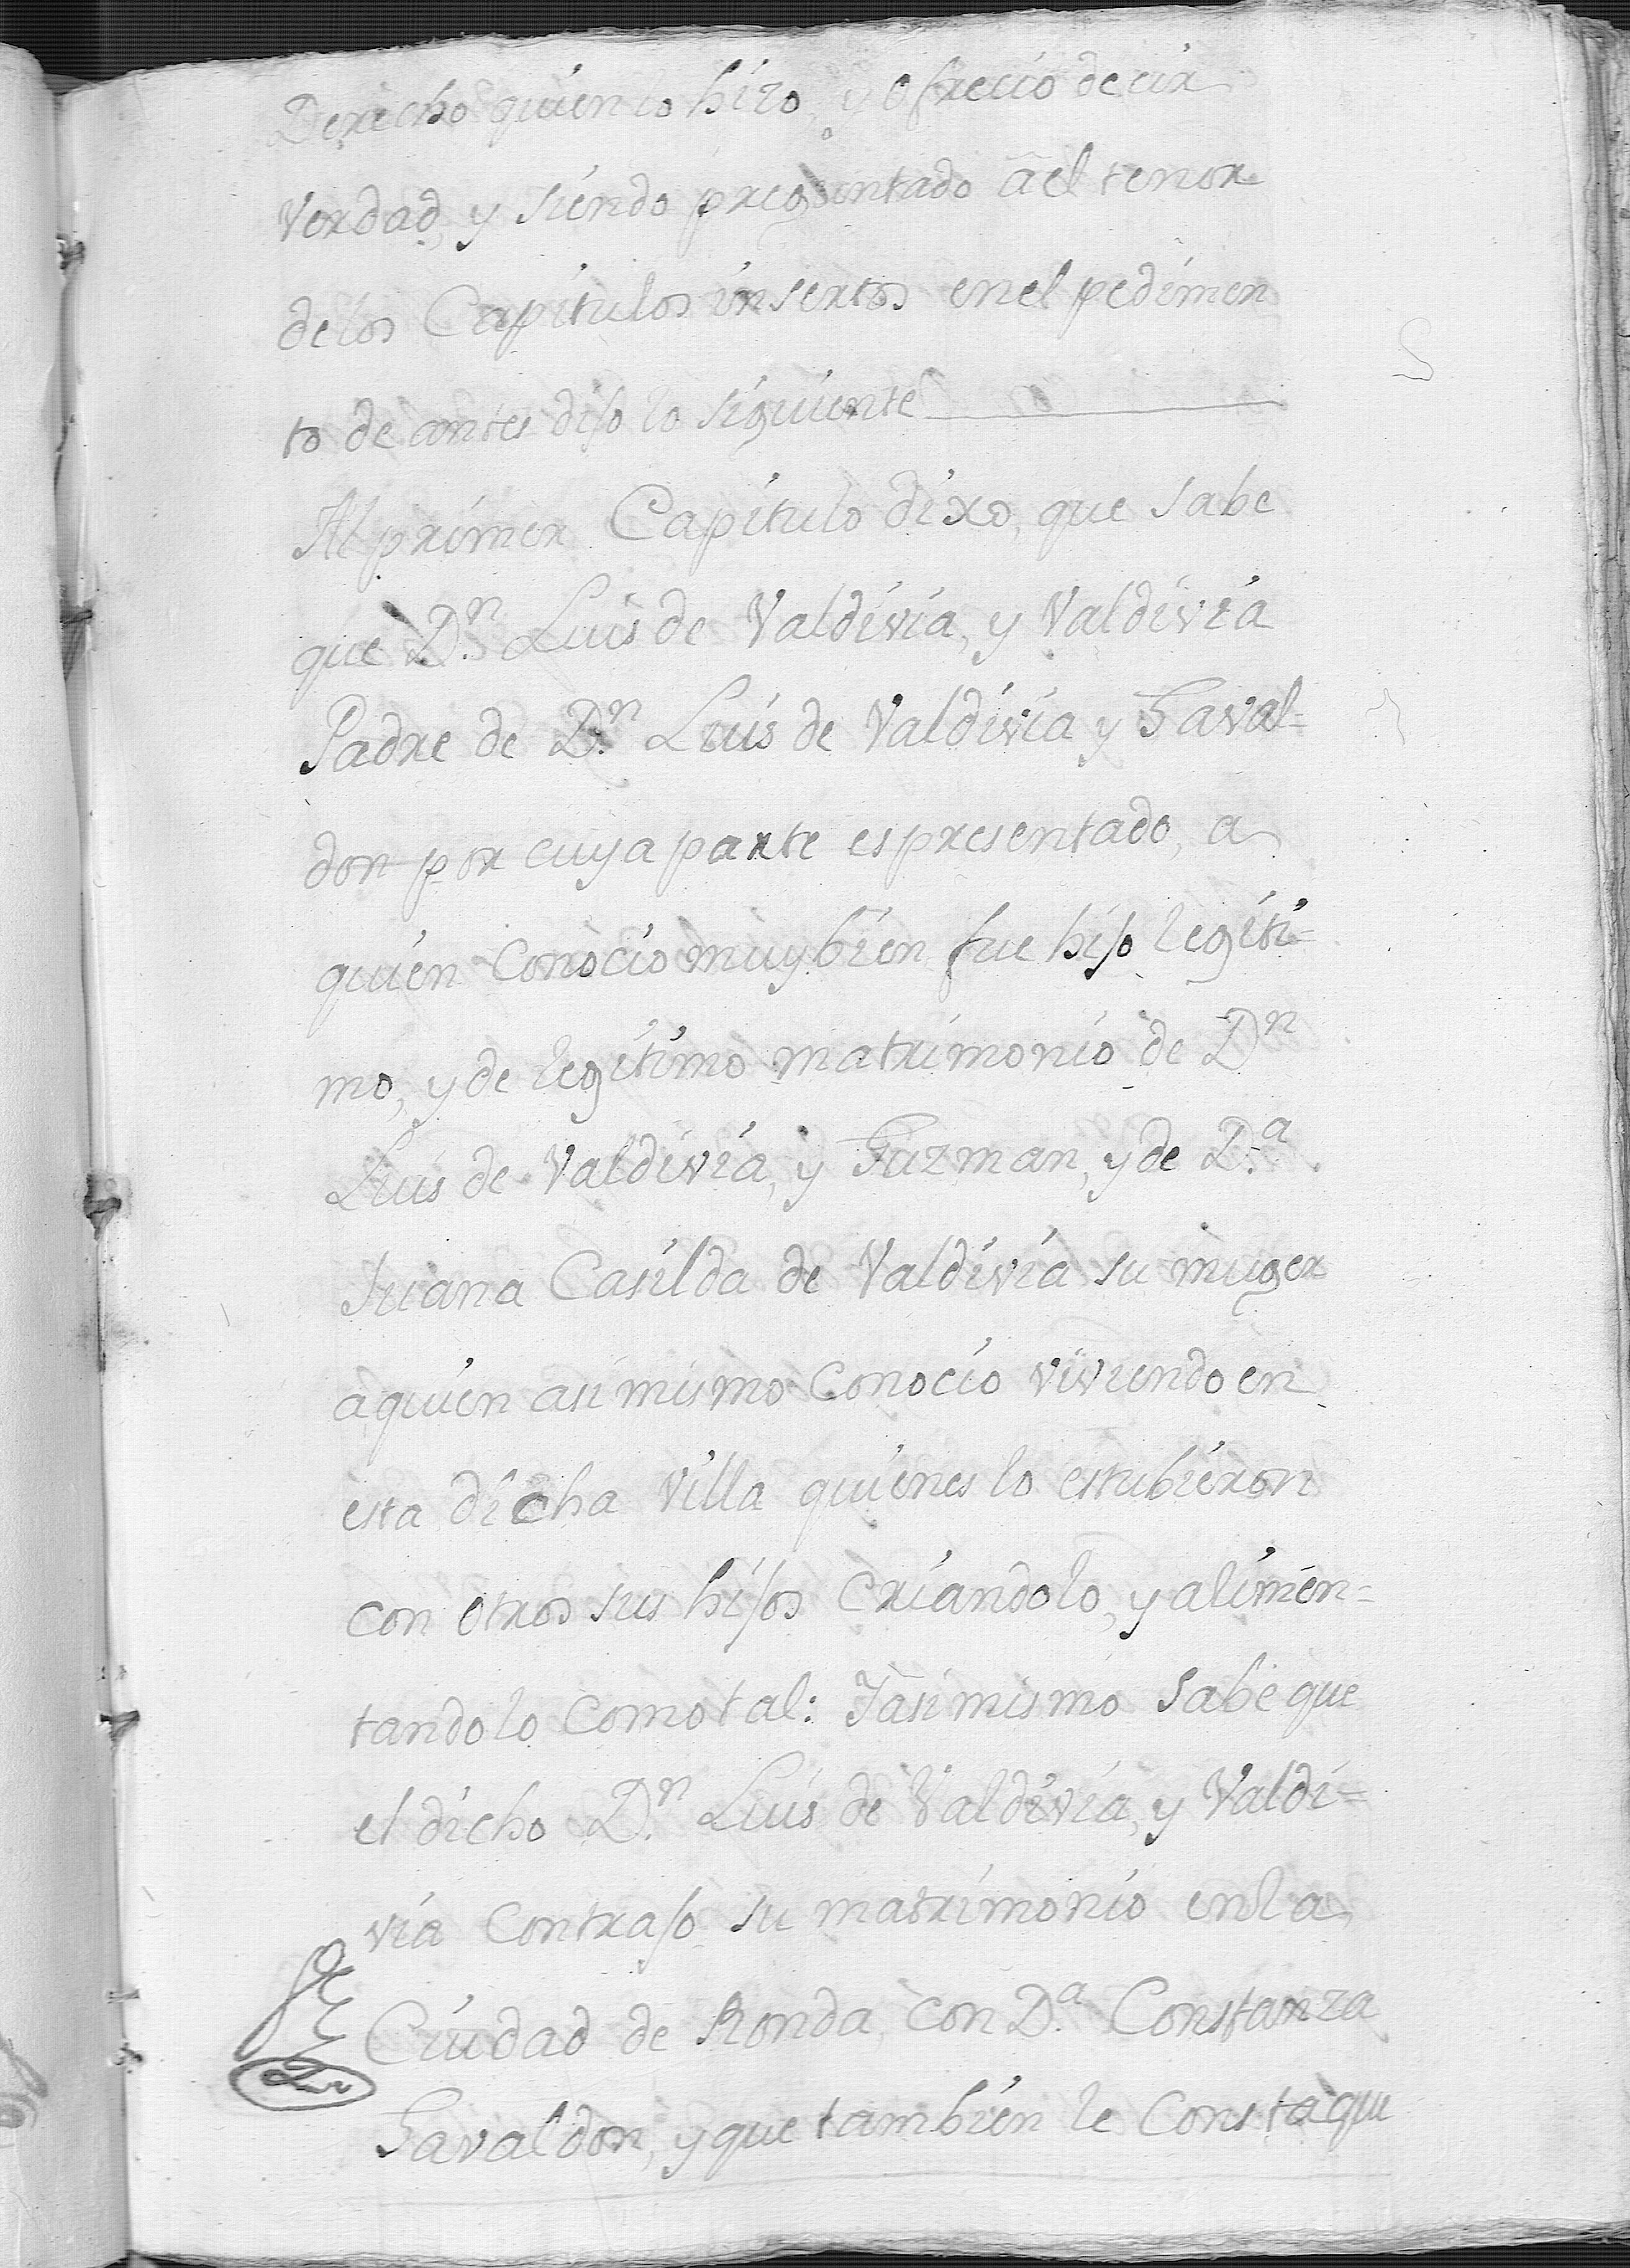 Derecho quien lo hizo, y ofrecio decir
Verdad, y siendo preguntado ael tenor
delos Capitulos insertos enel pedimen
to de antes dijo lo siguiente
Al primer Capitulo dixo, que sabe
que D.n Luis de Valdivia, y Valdivia
Padre de D.n Luis de Valdivia y Gaval=
don por cuya parte es presentado, a
quien conocio muy bien fue hijo legiti=
mo, y de legitimo matrimonio de D.n
Luis de Valdivia, y Guzman, y de D.a
Juana Casilda de Valdivia su muger
aquien asimismo conocio viviendo en
esta dicha Villa quienes lo estubieron
con otros sus hijos criandolo, y alimen=
tandolo como tal: Yasimismo sabe que
el dicho D.n Luis de Valdivia, y Valdi=
via Contrajo su matrimonio enla
Ciudad de Ronda, con D.a Constanza
Gavaldon, y que tambien le Consta que